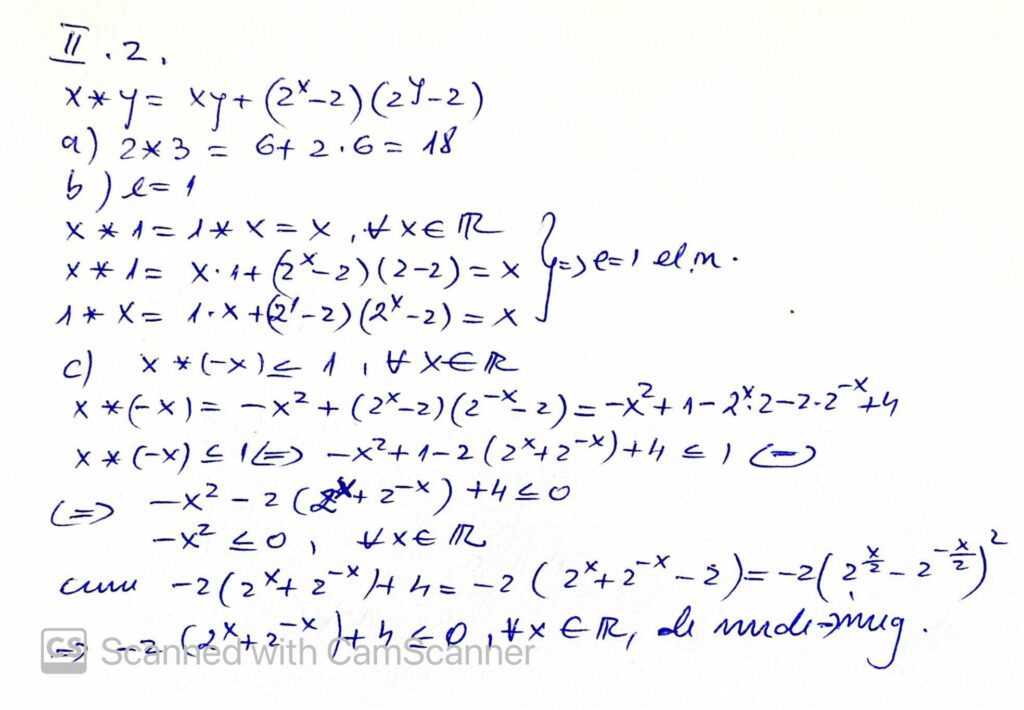 II.2.
x*y = xy + (2^x-2)(2^y-2)
a) 2*3 = 6+2·6 = 18
b) e=1
x*1 = 1*x = x, ∀x∈ℝ
x*1 = x·1+(2^x-2)(2-2) = x } => e=1 el.n.
1*x = 1·x+(2^1-2)(2^x-2) = x
c) x*(-x) ≤ 1, ∀x∈ℝ
x*(-x) = -x²+(2^x-2)(2^-x-2) = -x²+1-2^x·2-2·2^-x+4
x*(-x) ≤ 1 <=> -x²+1-2(2^x+2^-x)+4 ≤ 1 <=>
<=> -x²-2(2^x+2^-x)+4 ≤ 0
-x² ≤ 0, ∀x∈ℝ
cum -2(2^x+2^-x)+4 = -2(2^x+2^-x-2) = -2(2^(x/2)-2^(-x/2))²
=> -2(2^x+2^-x)+4 ≤ 0, ∀x∈ℝ, de unde
CS Scanned with CamScanner